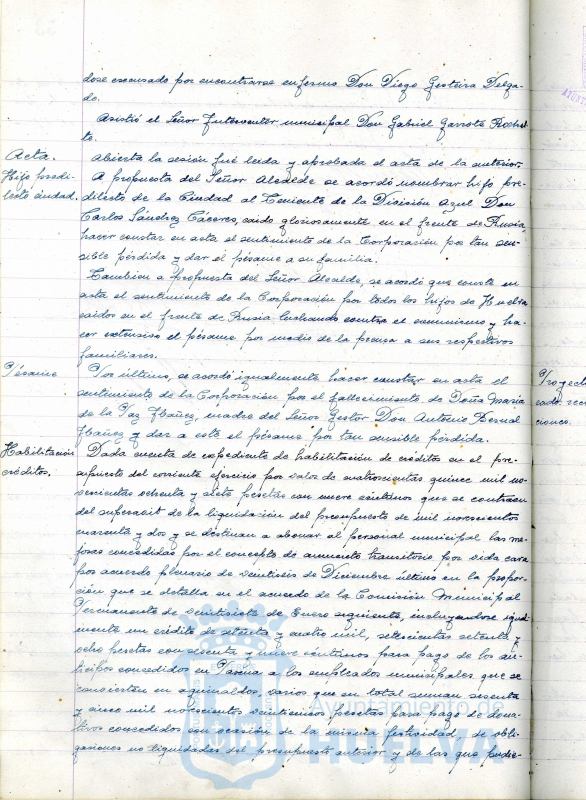 dose excusado por encontrarse enfermo Don Diego Gesteira Delga-
do.
Asistió el Señor Interventor municipal Don Gabriel Garrote
te.
Acta.
Abierta la sesión fué leida y aprobada el acta de la anterior.
Hijo predi-
lecto ciudad.
A propuesta del Señor Alcalde se acordó nombrar hijo pre-
dilecto de la Ciudad al Teniente de la División Azul Don
Carlos Sánchez Cáceres, caido gloriosamente en el frente de Rusia,
hacer constar en acta el sentimiento de la Corporación por tan sen-
sible pérdida y dar el pésame a su familia.
Tambien a propuesta del Señor Alcalde, se acordó que conste en
acta el sentimiento de la Corporación por todos los hijos de Huelva
caidos en el frente de Rusia luchando contra el comunismo y ha-
cer extensivo el pésame por medio de la prensa a sus respectivos
familiares.
Pésame
Por último, se acordó igualmente hacer constar en acta el
sentimiento de la Corporación por el fallecimiento de Doña Maria
de la Paz Ibañez, madre del Señor Gestor Don Antonio Bernal
Ibañez y dar a este el pésame por tan sensible pérdida.
Habilitación
créditos.
Dada cuenta de expediente de habilitación de créditos en el pre-
supuesto del corriente ejercicio por valor de cuatrocientas quince mil no-
vecientas ochenta y siete pesetas con nueve céntimos que se contraen
del superavit de la liquidación del presupuesto de mil novecientos
cuarenta y dos y se destinan a abonar al personal municipal las me-
joras concedidas por el concepto de aumento transitorio por vida cara
por acuerdo plenario de veintiseis de Diciembre último en la propor-
ción que se detalla en el acuerdo de la Comisión Municipal
Permanente de veintisiete de Enero siguiente, incluyendose igual-
mente un crédito de setenta y cuatro mil, setecientas setenta y
ocho pesetas con sesenta y nueve céntimos para pago de los an-
ticipos concedidos en Pascua a los empleados municipales que se
convierten en aguinaldos, varios que en total suman sesenta
y cinco mil novecientas veinticinco pesetas para pago de dona-
tivos concedidos con ocasión de la misma festividad, de obli-
gaciones no liquidadas del presupuesto anterior y de las que pudie-
Ayuntamiento de
HUELVA